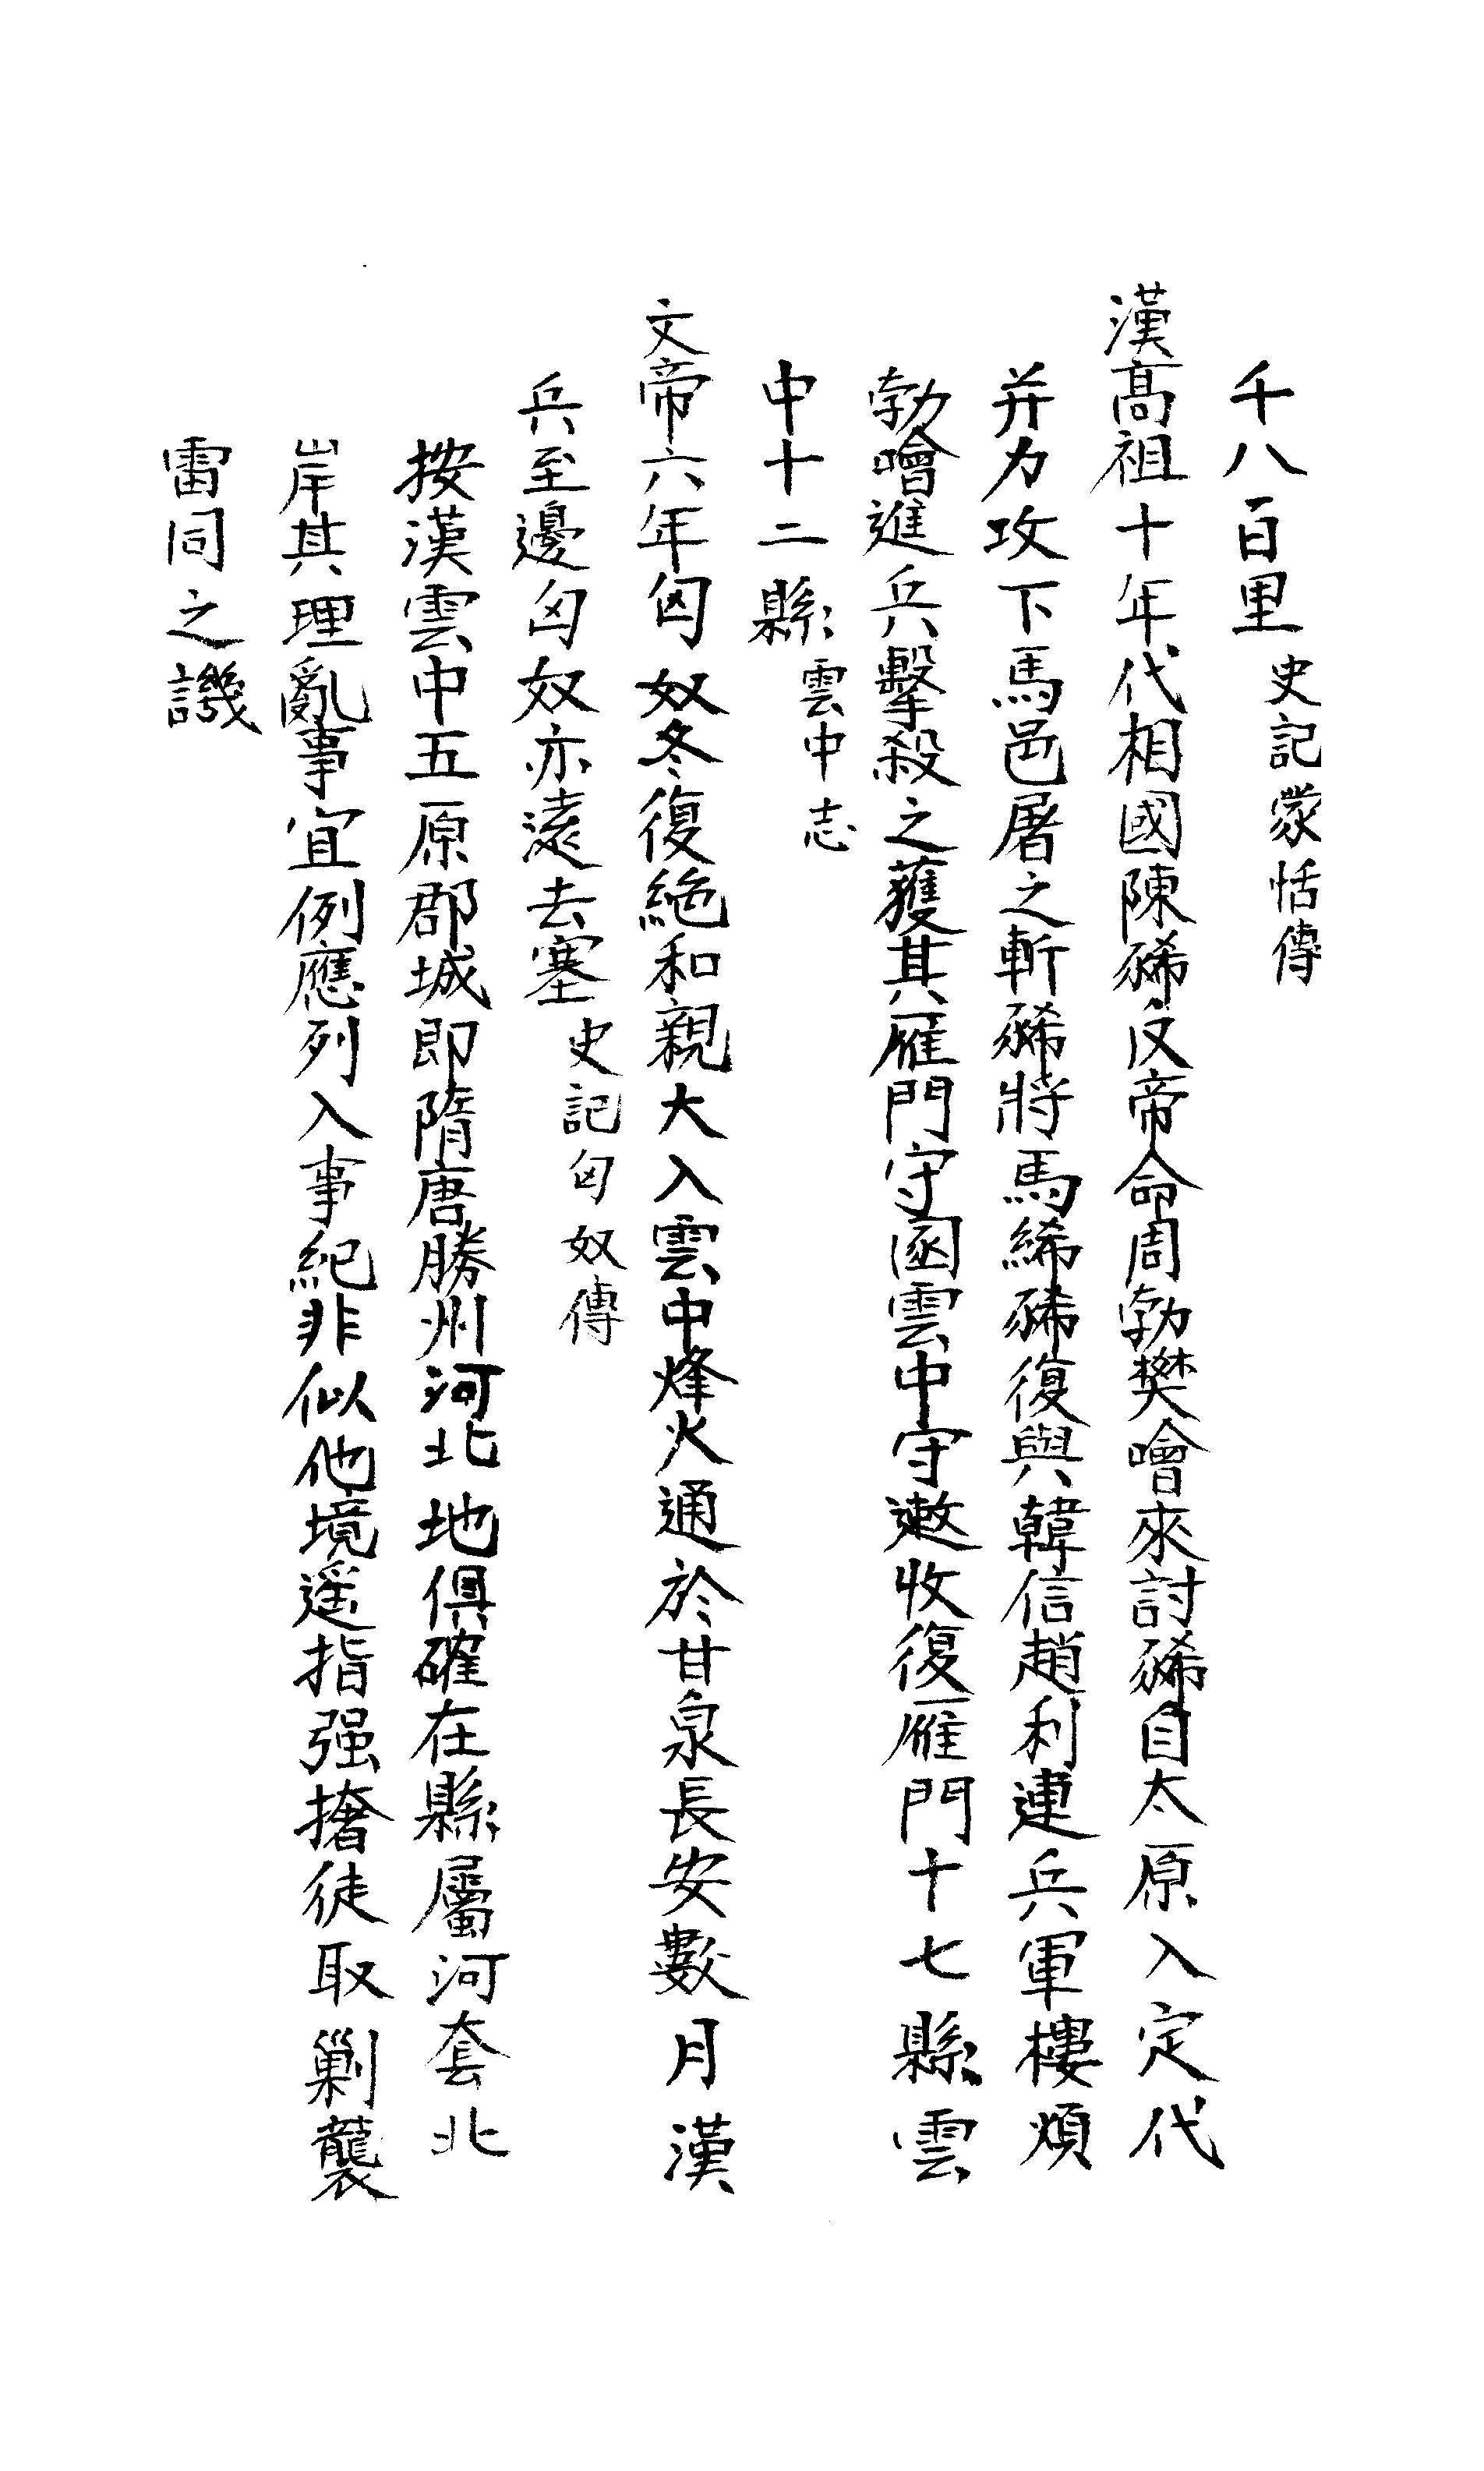 千八百里史記蒙恬傳
漢高祖十年代相國陳豨反帝命周勃樊噲來討豨自太原入定代
并力攻下馬邑屠之斬豨將馬絺豨復與韓信趙利連兵軍樓煩
勃噲進兵擊殺之獲其雁門守圂雲中守遫收復雁門十七縣雲
中十二縣雲中志
文帝六年匈奴冬復絕和親大入雲中烽火通於甘泉長安數月漢
兵至邊匈奴亦遠去塞史記匈奴傳
按漢雲中五原郡城即隋唐勝州河北地俱確在縣屬河套北
岸其理亂事宜例應列入事紀非似他境遥指强撦徒取剿襲
雷同之譏